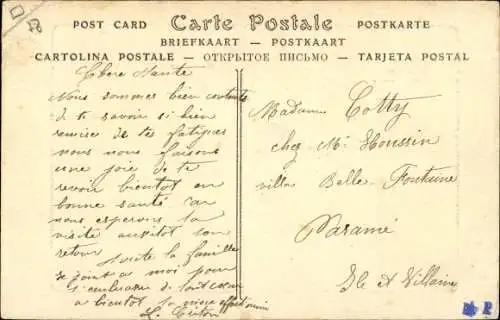 POST CARD Carte Postale POSTKARTE
BRIEFKAART — POSTKAART
CARTOLINA POSTALE — ОТКРЫТОЕ ПИСЬМО — TARJETA POSTAL
Chere Tante
Nous sommes bien contents
de te savoir si bien
remise de tes fatigues
nous nous faisons
une joie de te
revoir bientot en
bonne santé car
nous esperons ta
visite aussitot ton
retour
Toute la famille
se joint a moi pour
t'embrasser de tout cœur
a bientot ta niece
Madame Cotty
chez Mr Houssin
villa Belle Fontaine
Paramé
Ile et Villaine